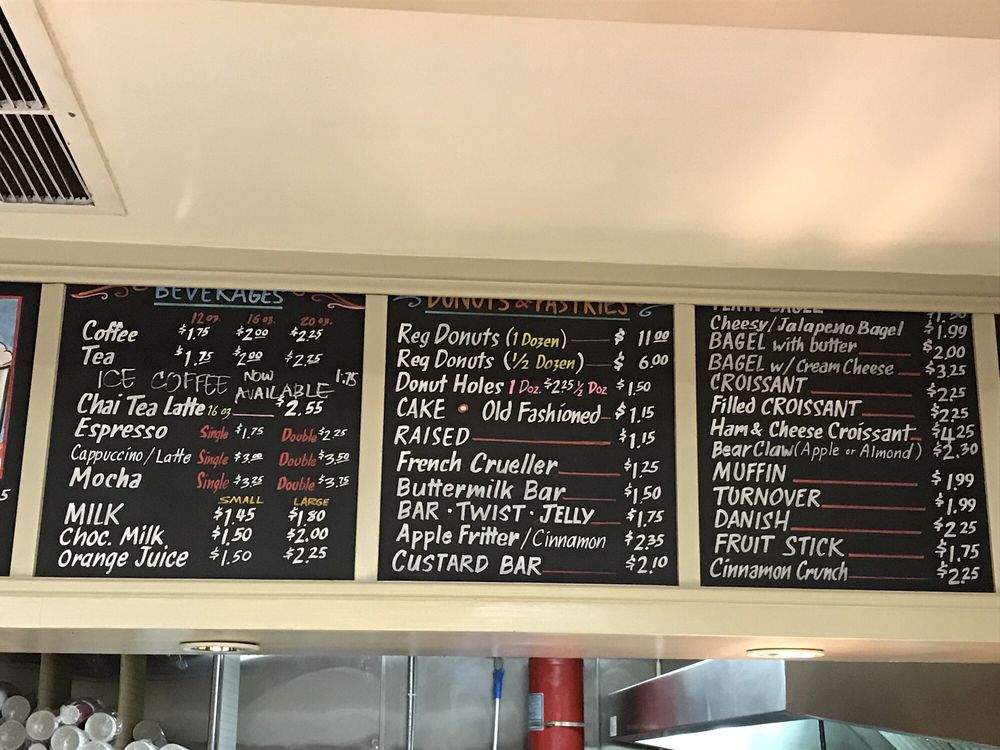 BEVERAGES
12 oz. 16 oz. 20 oz.
Coffee $1.75 $2.00 $2.25
Tea $1.75 $2.00 $2.25
ICE COFFEE NOW AVAILABLE 1.75
Chai Tea Latte 16 oz $2.55
Espresso Single $1.75 Double $2.25
Cappuccino/Latte Single $3.00 Double $3.50
Mocha Single $3.25 Double $3.75
SMALL LARGE
MILK $1.45 $1.80
Choc. Milk $1.50 $2.00
Orange Juice $1.50 $2.25
DONUTS & PASTRIES
Reg Donuts (1 Dozen) $ 11.00
Reg Donuts (1/2 Dozen) $ 6.00
Donut Holes 1 Doz. $2.25 1/2 Doz $1.50
CAKE • Old Fashioned $1.15
RAISED $1.15
French Crueller $1.25
Buttermilk Bar $1.50
BAR · TWIST · JELLY $1.75
Apple Fritter/Cinnamon $2.35
CUSTARD BAR $2.10
PLAIN BAGEL $1.50
Cheesy/Jalapeno Bagel $1.99
BAGEL with butter $2.00
BAGEL w/ Cream Cheese $3.25
CROISSANT $2.25
Filled CROISSANT $2.25
Ham & Cheese Croissant $4.25
Bear Claw (Apple or Almond) $2.30
MUFFIN $1.99
TURNOVER $1.99
DANISH $2.25
FRUIT STICK $1.75
Cinnamon Crunch $2.25